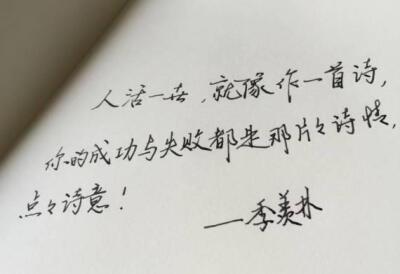 人活一世，就像作一首诗，
你的成功与失败都是那片々诗情，
点々诗意！
——季羡林